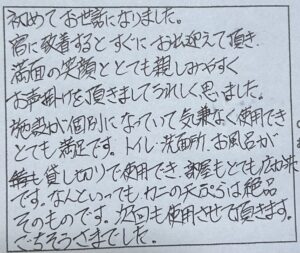 初めてお世話になりました。
宿に到着するとすぐにお出迎えて頂き、
満面の笑顔ととても親しみやすく
お声掛けを頂きましてうれしく思いました。
施設が個別になっていて気兼なく使用でき
とても満足です。トイレ・洗面所・お風呂が
毎も貸し切りで使用でき、部屋もとても広め
です。なんといっても、カニの天ぷらは絶品
そのものです。次回も使用させて頂きます。
ごちそうさまでした。